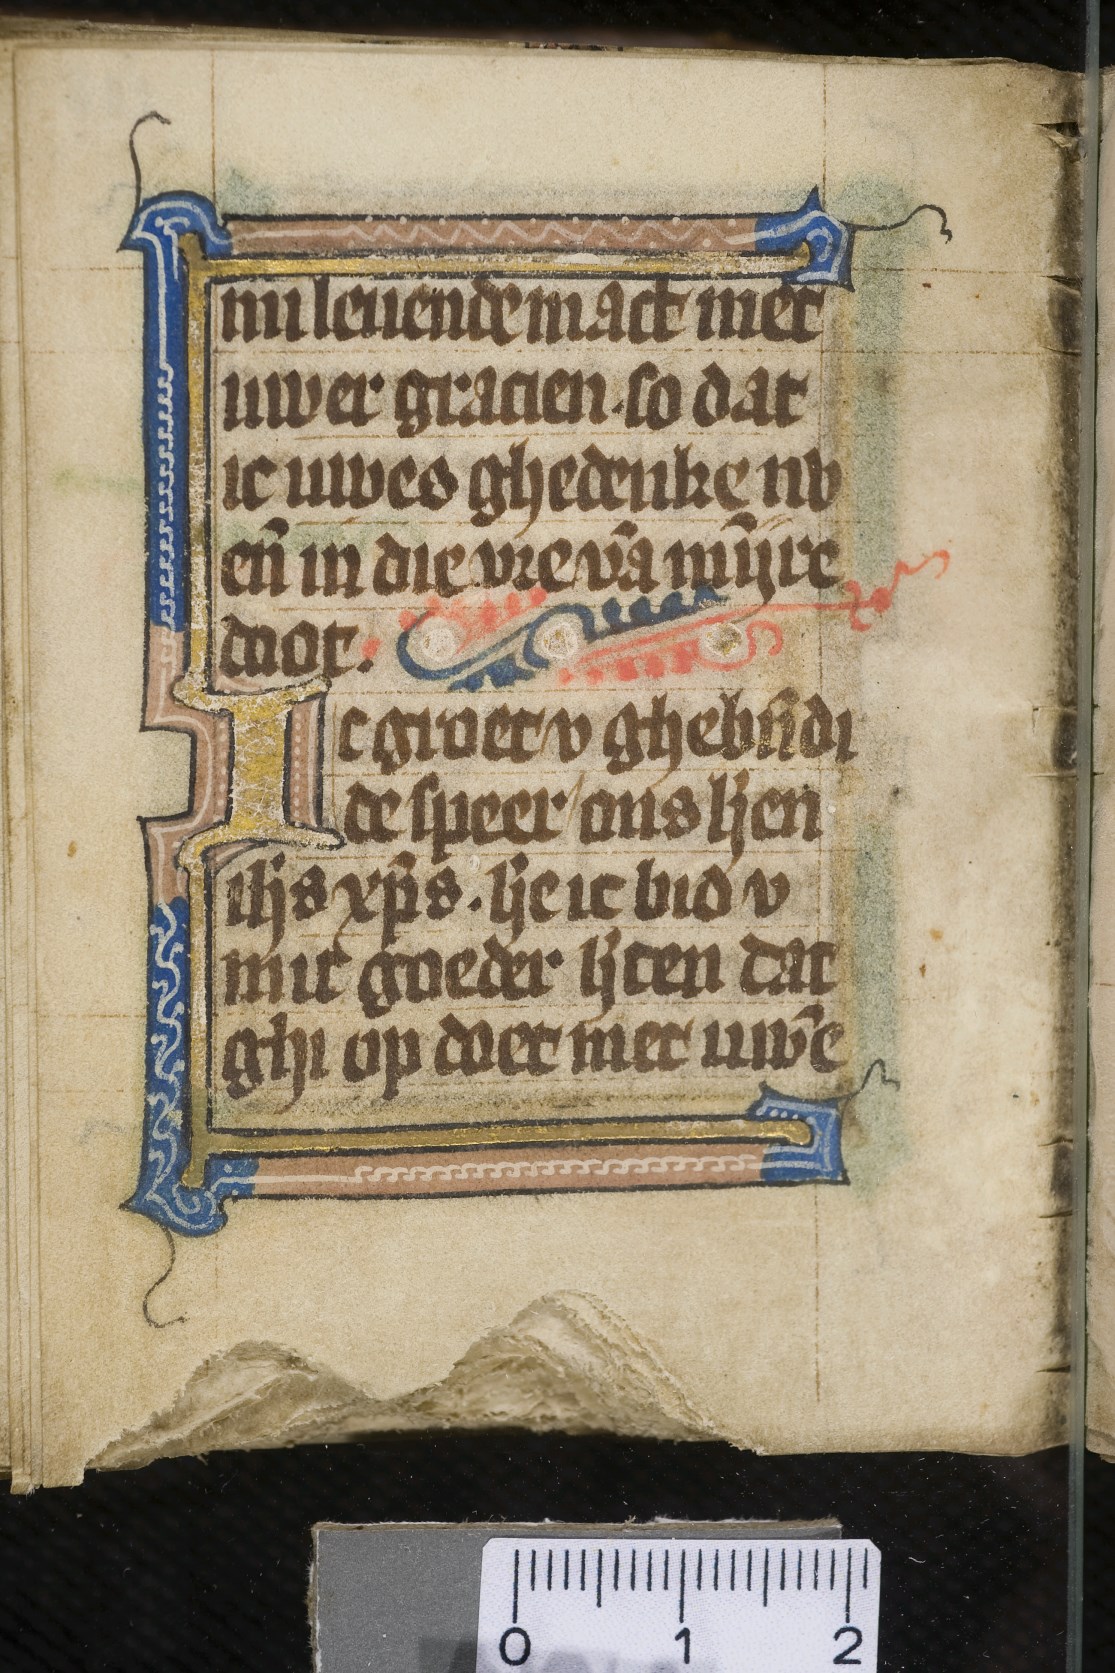 mi leuende mact met
uwer gracien. so dat
ic uwes ghedenke nv
en̄ in die vre vā mīyre
doot.
Ic groet v ghebn̄di
de speer ons hr̄en
ih̄s xp̄s. hr̄e ic bid v
mit goeder hr̄ten dat
ghi op doet met uwe᷑
0 1 2